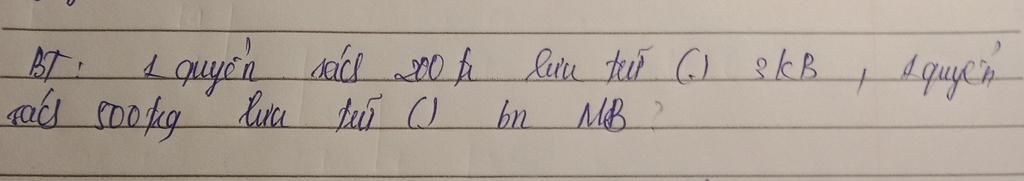 BT: 1 quyển sách 200 lưu trữ (.) 3 kB, 1 quyển
sách 500 lưu trữ () bn MB?